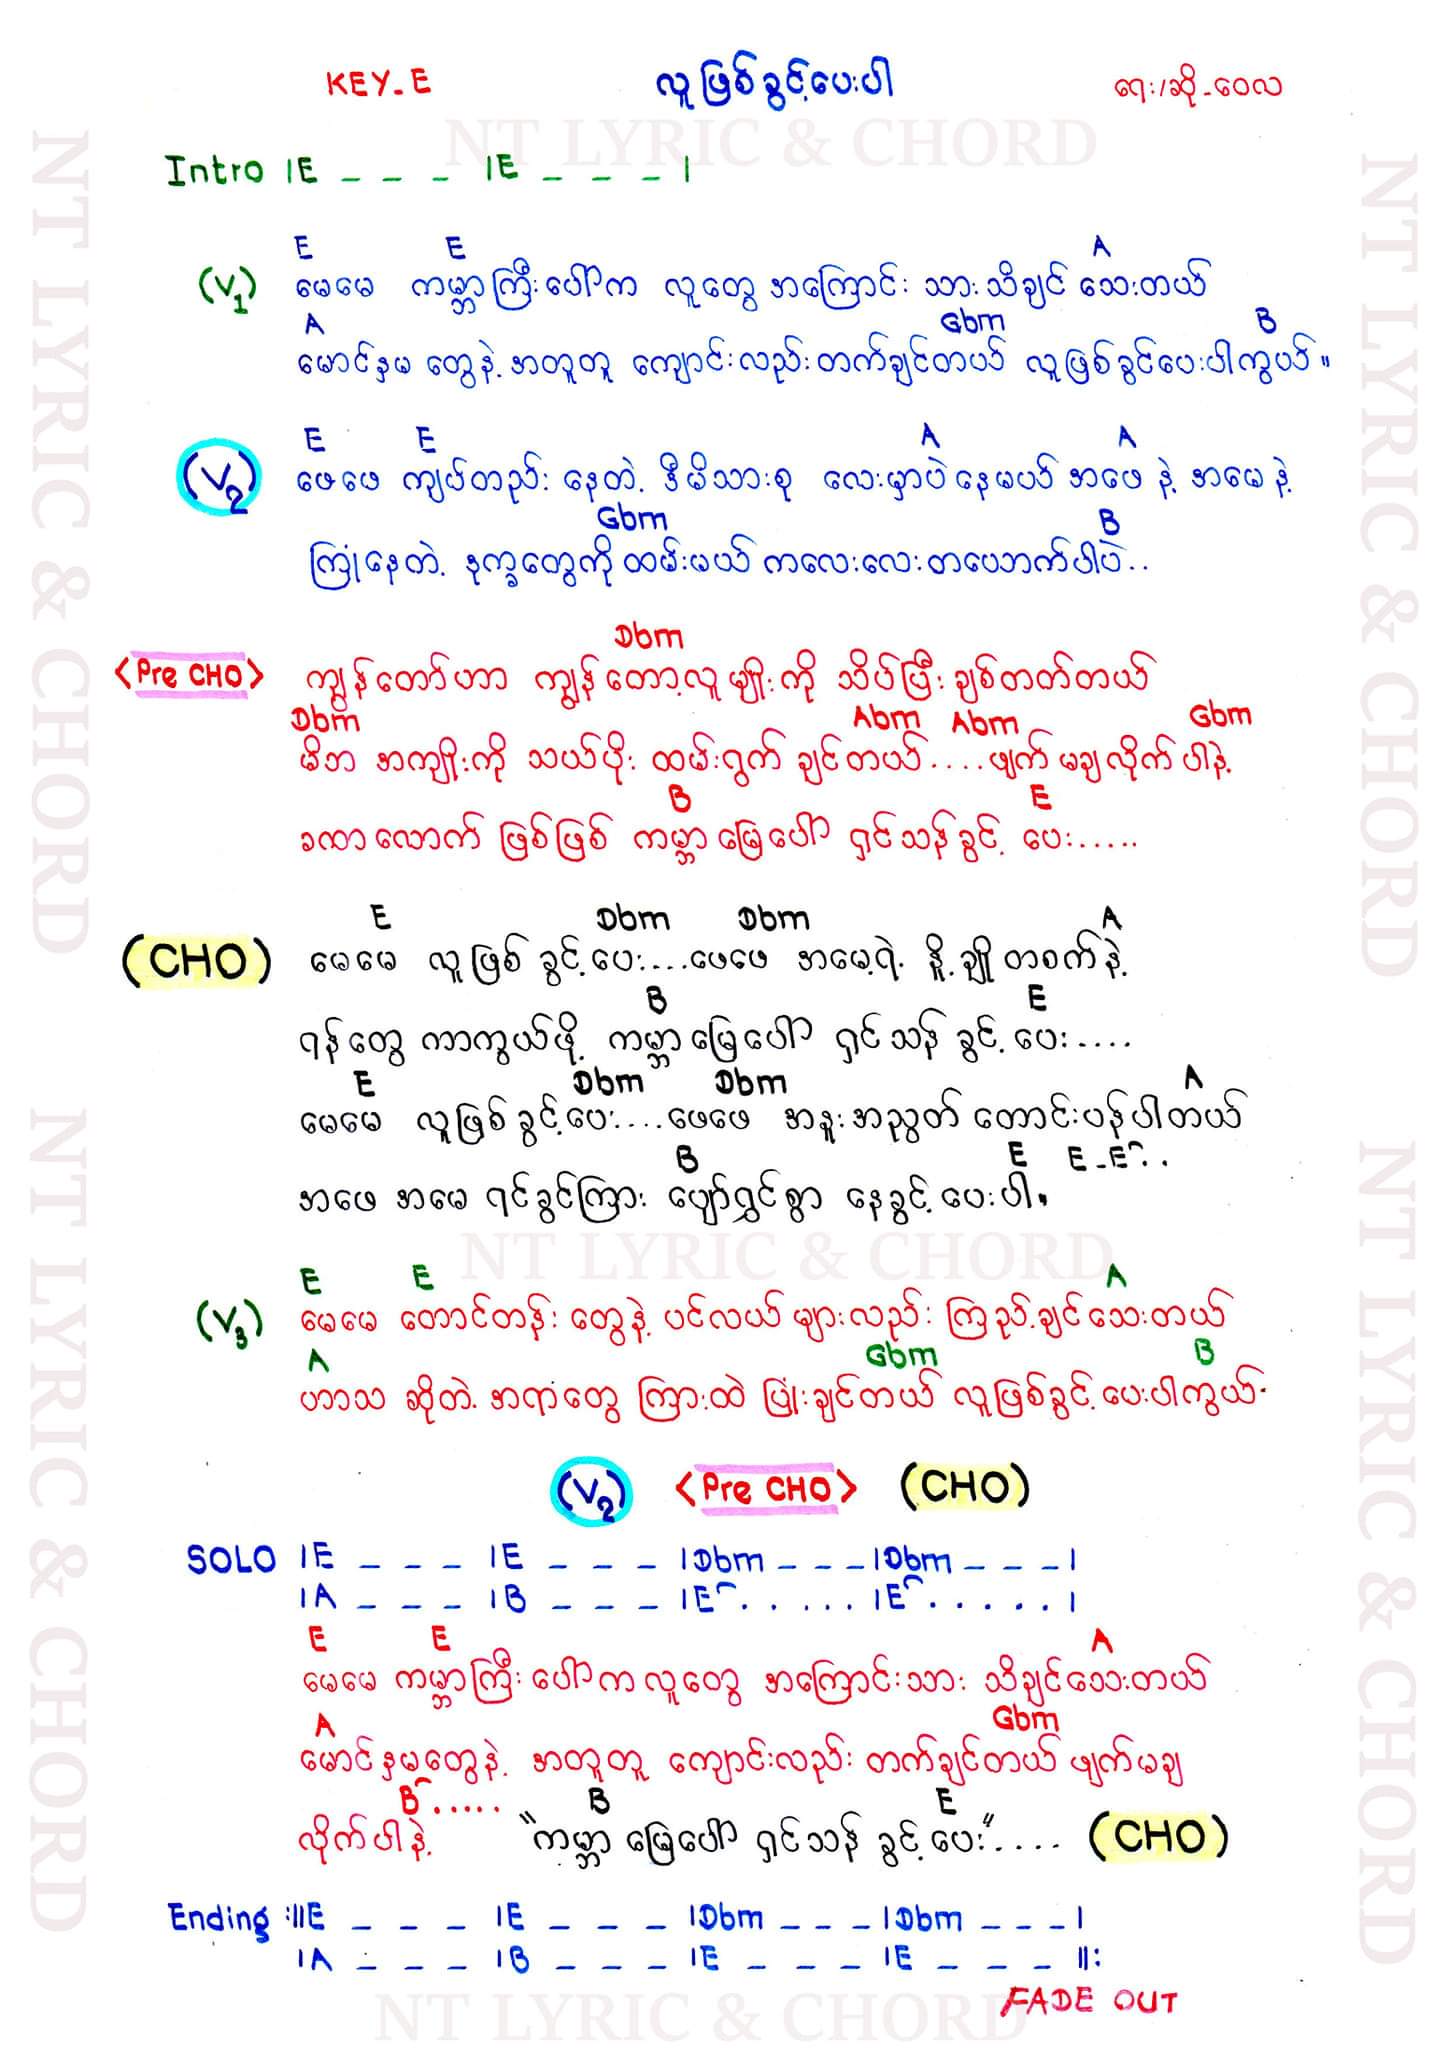 KEY_E လူဖြစ်ခွင့်ပေးပါ ရေး/ဆို_ဝေလ
NT LYRIC & CHORD
Intro |E _ _ _ |E _ _ _ |
E E A
(V1) မေမေ ကမ္ဘာကြီးပေါ်က လူတွေ အကြောင်း သား သိချင် သေးတယ်
A Gbm B
မောင်နှမ တွေနဲ့ အတူတူ ကျောင်းလည်း တက်ချင်တယ် လူဖြစ်ခွင်ပေးပါကွယ်။
E E A A
(V2) ဖေဖေ ကျပ်တည်း နေတဲ့ ဒီမိသားစု လေးမှာပဲ နေမယ် အဖေ နဲ့ အမေ နဲ့
Gbm B
ကြုံနေတဲ့ ဒုက္ခတွေကို ထမ်းမယ် ကလေးလေး တပေဘက်ပါပဲ..
Dbm
<Pre CHO> ကျွန်တော်ဟာ ကျွန်တော့လူမျိုးကို သိပ်ပြီး ချစ်တတ်တယ်
Dbm Abm Abm Gbm
မိဘ အကျိုးကို သယ်ပိုး ထမ်းရွက် ချင်တယ်....ဖျက် မချလိုက် ပါနဲ့
B E
ခဏလောက် ဖြစ်ဖြစ် ကမ္ဘာမြေပေါ် ရှင်သန်ခွင့် ပေး.....
E Dbm Dbm A
(CHO) မေမေ လူဖြစ် ခွင့်ပေး....ဖေဖေ အမေ့ရဲ့ နို့ချို တစက်နဲ့
B E
ရန်တွေ ကာကွယ်ဖို့ ကမ္ဘာမြေပေါ် ရှင်သန် ခွင့် ပေး....
E Dbm Dbm A
မေမေ လူဖြစ်ခွင့်ပေး....ဖေဖေ အနူးအညွတ် တောင်းပန်ပါတယ်
B E E_E..
အဖေ အမေ ရင်ခွင်ကြား ပျော်ရွှင်စွာ နေခွင့် ပေးပါ.
NT LYRIC & CHORD
E E A
(V3) မေမေ တောင်တန်း တွေနဲ့ ပင်လယ် များလည်း ကြည့်ချင်သေးတယ်
A Gbm B
ဟာသ ဆိုတဲ့ အရာတွေ ကြားထဲ ပြုံးချင်တယ် လူဖြစ်ခွင့် ပေးပါကွယ်.
(V2) <Pre CHO> (CHO)
SOLO |E _ _ _ |E _ _ _ |Dbm _ _ _ |Dbm _ _ _ |
|A _ _ _ |B _ _ _ |E..... |E..... |
E E A
မေမေ ကမ္ဘာကြီး ပေါ်ကလူတွေ အကြောင်းသား သိချင်သေးတယ်
A Gbm
မောင်နှမတွေနဲ့ အတူတူ ကျောင်းလည်း တက်ချင်တယ် ဖျက်မချ
B..... B E
လိုက်ပါနဲ့ "ကမ္ဘာ မြေပေါ် ရှင်သန် ခွင့်ပေး".... (CHO)
Ending :||E _ _ _ |E _ _ _ |Dbm _ _ _ |Dbm _ _ _ |
|A _ _ _ |B _ _ _ |E _ _ _ |E _ _ _ ||:
FADE OUT
NT LYRIC & CHORD
NT LYRIC & CHORD
NT LYRIC & CHORD
NT LYRIC & CHORD
NT LYRIC & CHORD